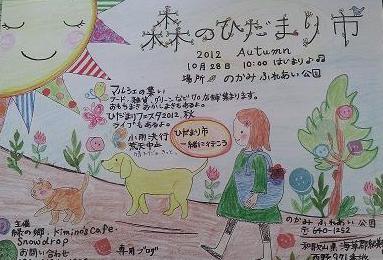 森のひだまり市
2012 Autumn
10月28日 10:00 はじまり♪♫
場所 のかみふれあい公園
マルシェの集い
フード、雑貨、グリーンなど70店舗集まります。
おもちまきありこまきもあるよ。
ひだまりフェスタ2012.秋
ライブもあるよ。
小雨決行
荒天中止
ひだまり市
一緒に行こう
主催
緑の郷. Kimino's Cafe.
Snowdrop
お問い合わせ
専用ブログ
のかみ ふれあい公園
〒640-1152
和歌山県 海草郡紀美
西野